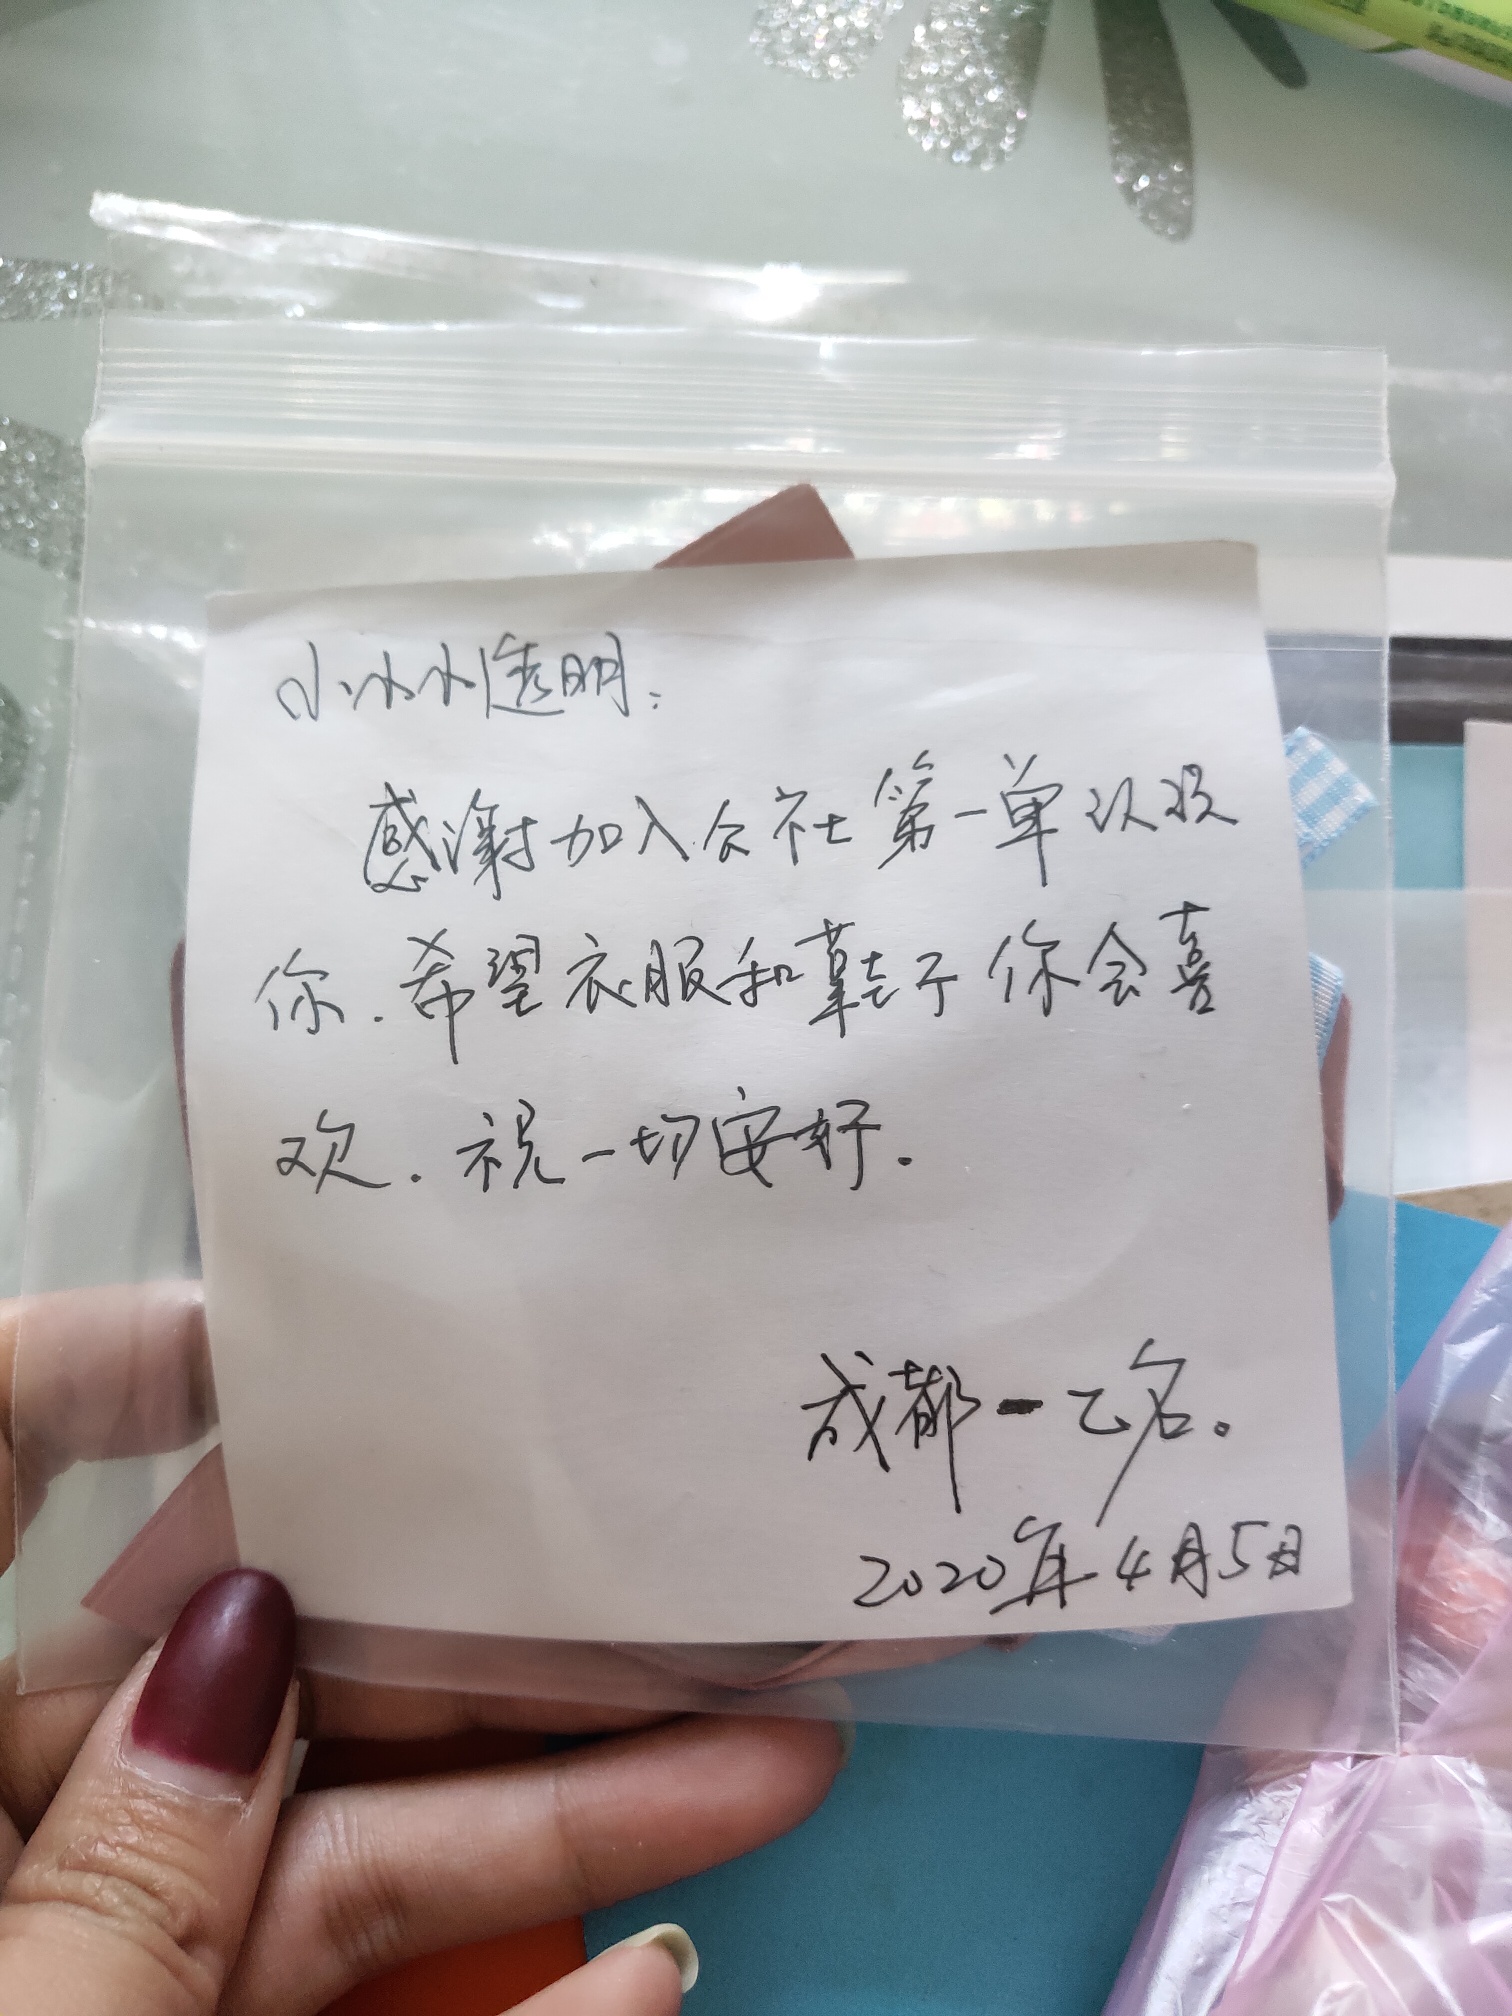 小小小透明:
感谢加入会社第一单认识
你.希望衣服和鞋子你会喜
欢.祝一切安好.
成都-乙名。
2020年4月5日